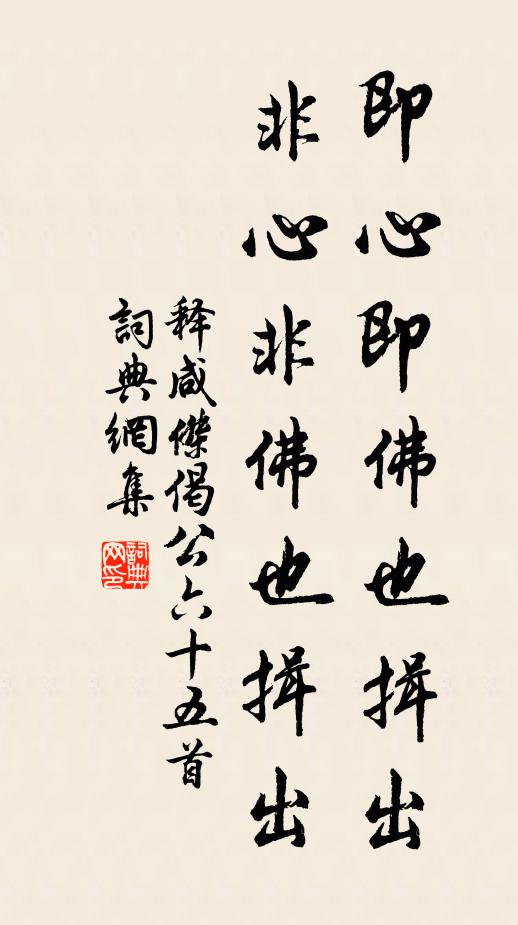 即心即佛也揖出
非心非佛也揖出
释咸傑偈公六十五首
詞典網集
詞典
网印